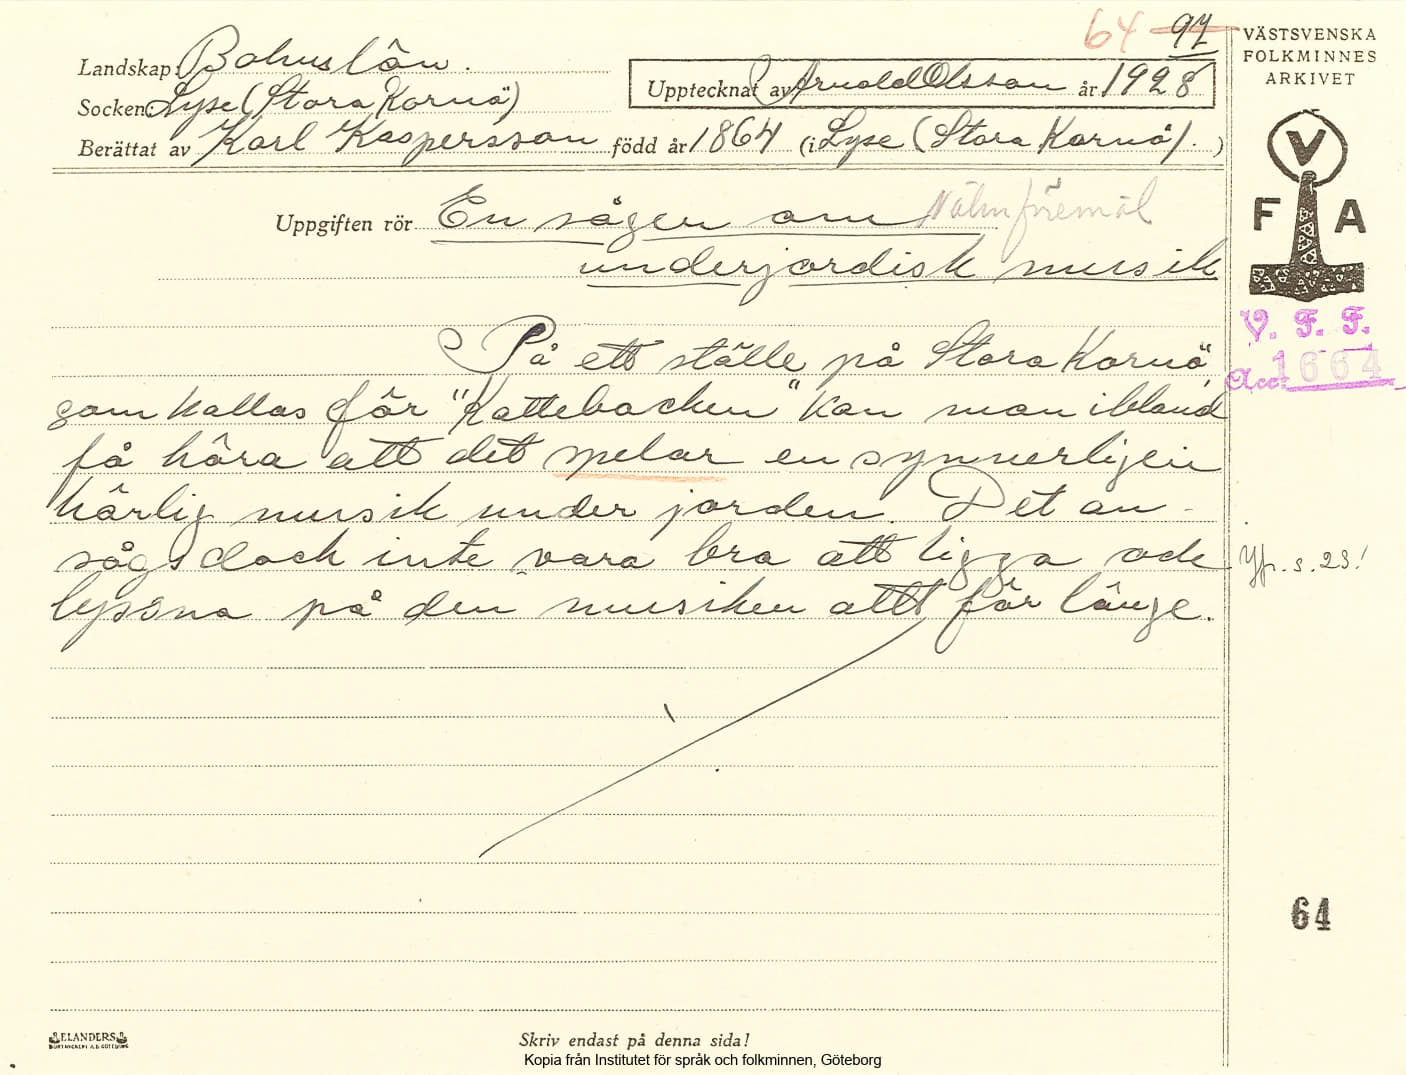 64 97
VÄSTSVENSKA
FOLKMINNES
ARKIVET
Landskap: Bohuslän.
Upptecknat av Arnold Olsson år 1928
Socken: Lyse (Stora Kornö)
Berättat av Karl Kaspersson född år 1864 (i Lyse (Stora Kornö).)
V
F A
Uppgiften rör En sägen om
underjordisk musik
V. F. F.
Acc. 1664
På ett ställe på Stora Kornö,
som kallas för "Kattebacken" kan man ibland
få höra att det spelar en synnerligen
härlig musik under jorden. Det an-
sågs dock inte vara bra att ligga och
lyssna på den musiken allt för länge.
Jfr. s. 23!
64
ELANDERS
Skriv endast på denna sida!
Kopia från Institutet för språk och folkminnen, Göteborg